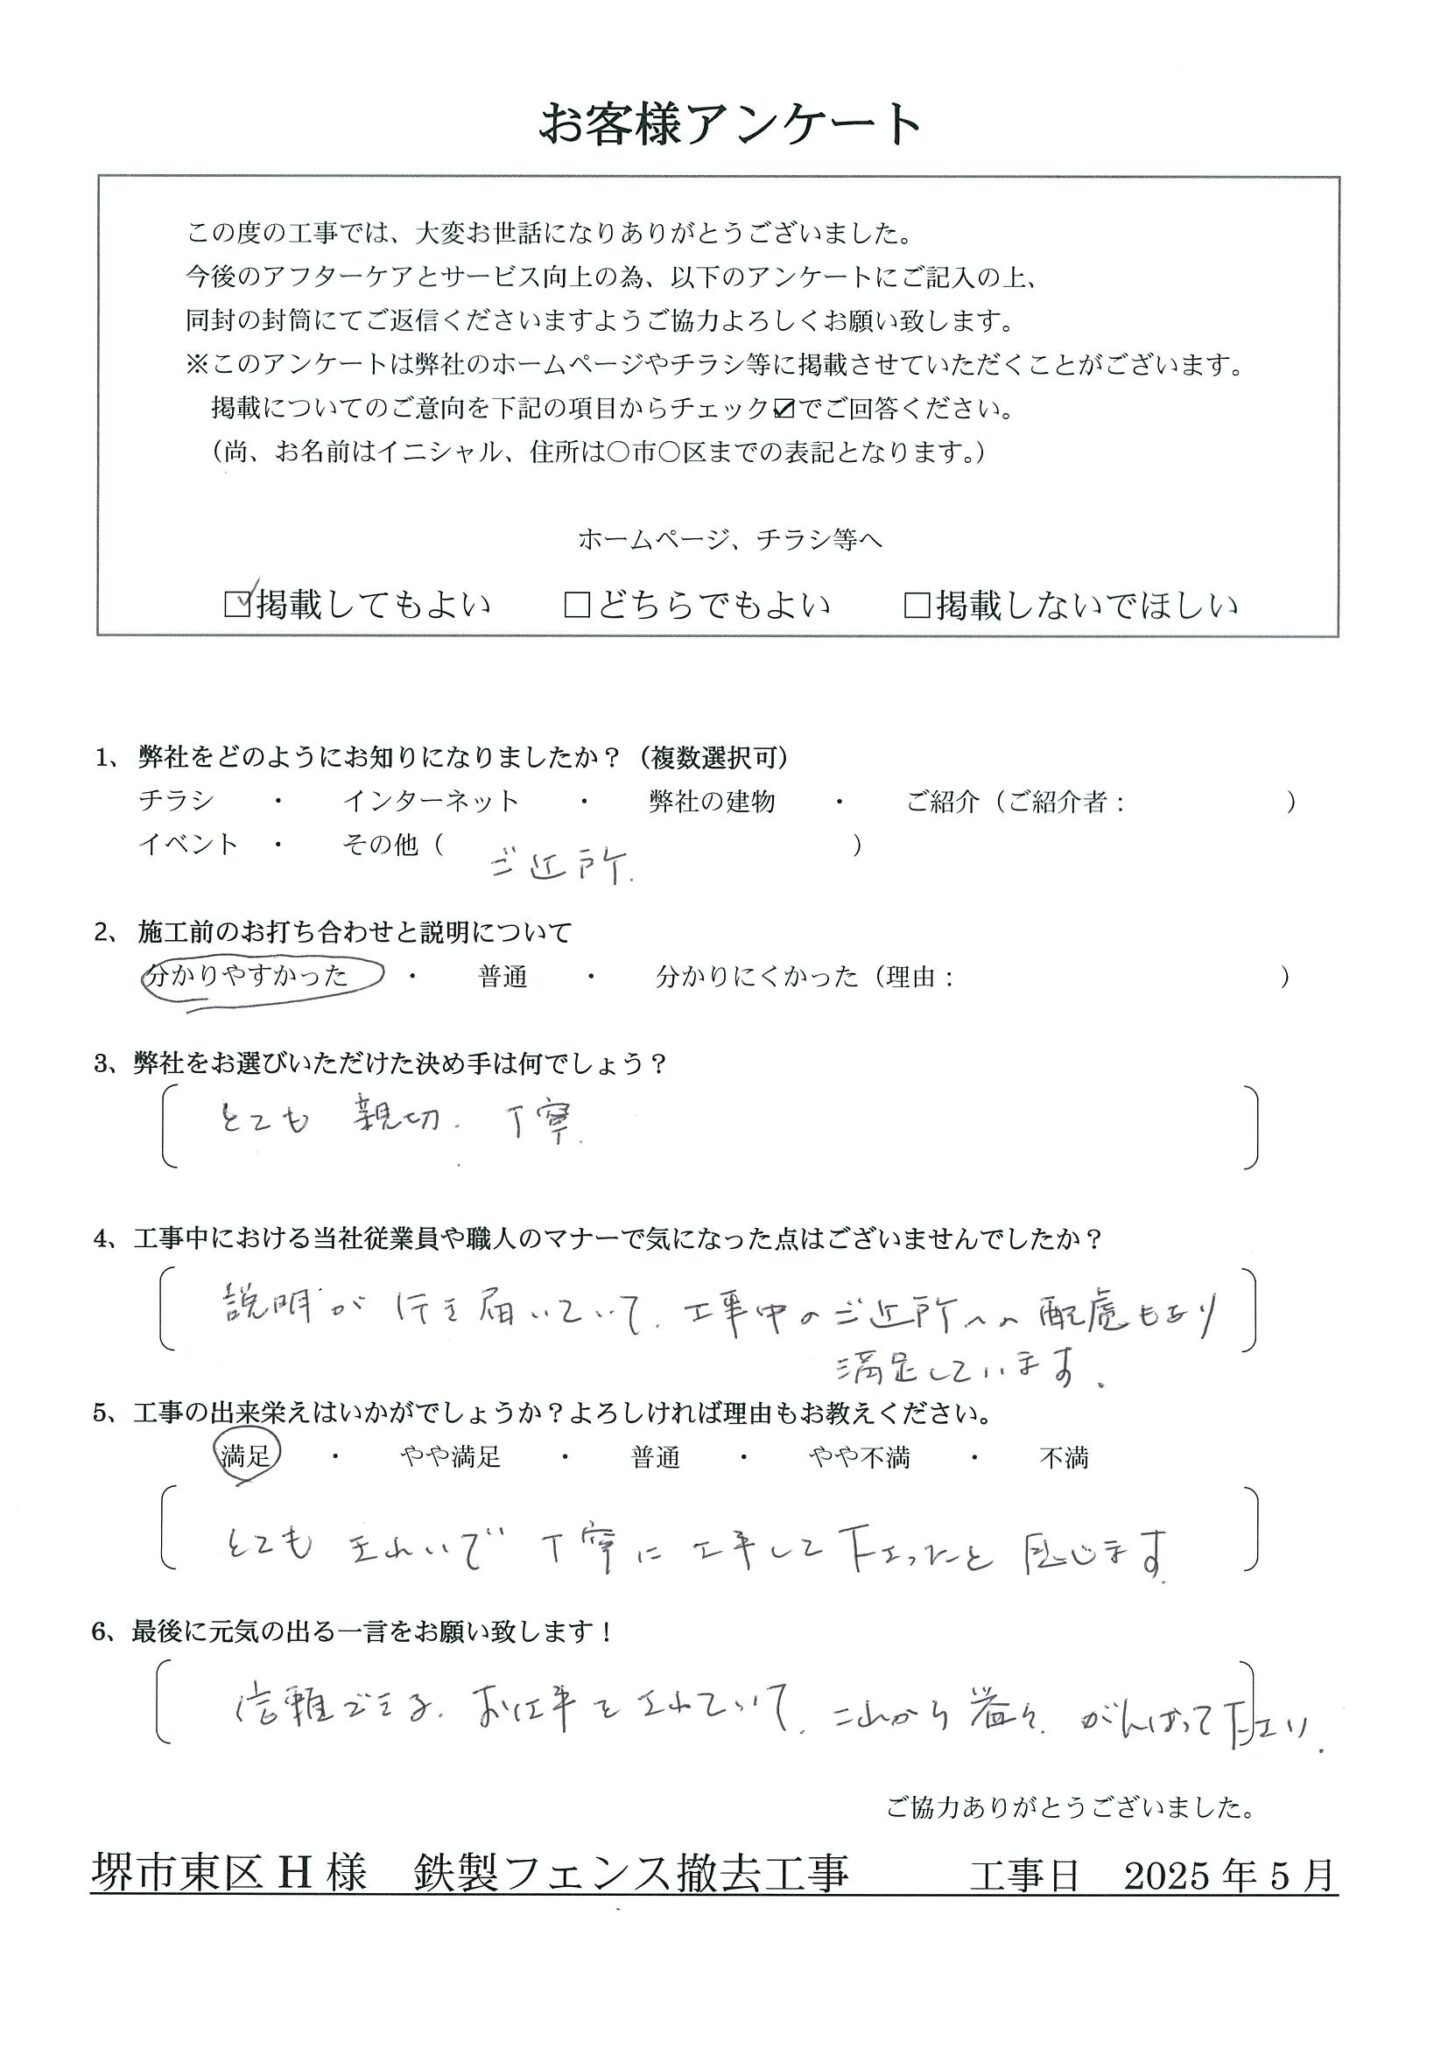 お客様アンケート
この度の工事では、大変お世話になりありがとうございました。
今後のアフターケアとサービス向上の為、以下のアンケートにご記入の上、
同封の封筒にてご返信くださいますようご協力よろしくお願い致します。
※このアンケートは弊社のホームページやチラシ等に掲載させていただくことがございます。
掲載についてのご意向を下記の項目からチェック☑でご回答ください。
（尚、お名前はイニシャル、住所は〇市〇区までの表記となります。）
ホームページ、チラシ等へ
☑掲載してもよい □どちらでもよい □掲載しないでほしい
1、弊社をどのようにお知りになりましたか？（複数選択可）
チラシ ・ インターネット ・ 弊社の建物 ・ ご紹介（ご紹介者： ）
イベント ・ その他（ ご近所. ）
2、施工前のお打ち合わせと説明について
分かりやすかった ・ 普通 ・ 分かりにくかった（理由： ）
3、弊社をお選びいただけた決め手は何でしょう？
とても 親切. 丁寧.
4、工事中における当社従業員や職人のマナーで気になった点はございませんでしたか？
説明が 行き届いていて、工事中のご近所への配慮もあり
満足しています.
5、工事の出来栄えはいかがでしょうか？よろしければ理由もお教えください。
満足 ・ やや満足 ・ 普通 ・ やや不満 ・ 不満
とても きれいで 丁寧に 工事して下さったと 感じます.
6、最後に元気の出る一言をお願い致します！
信頼できる. お仕事を されていて、これから 益々 がんばって下さい.
ご協力ありがとうございました。
堺市東区 H 様 鉄製フェンス撤去工事 工事日 2025 年 5 月